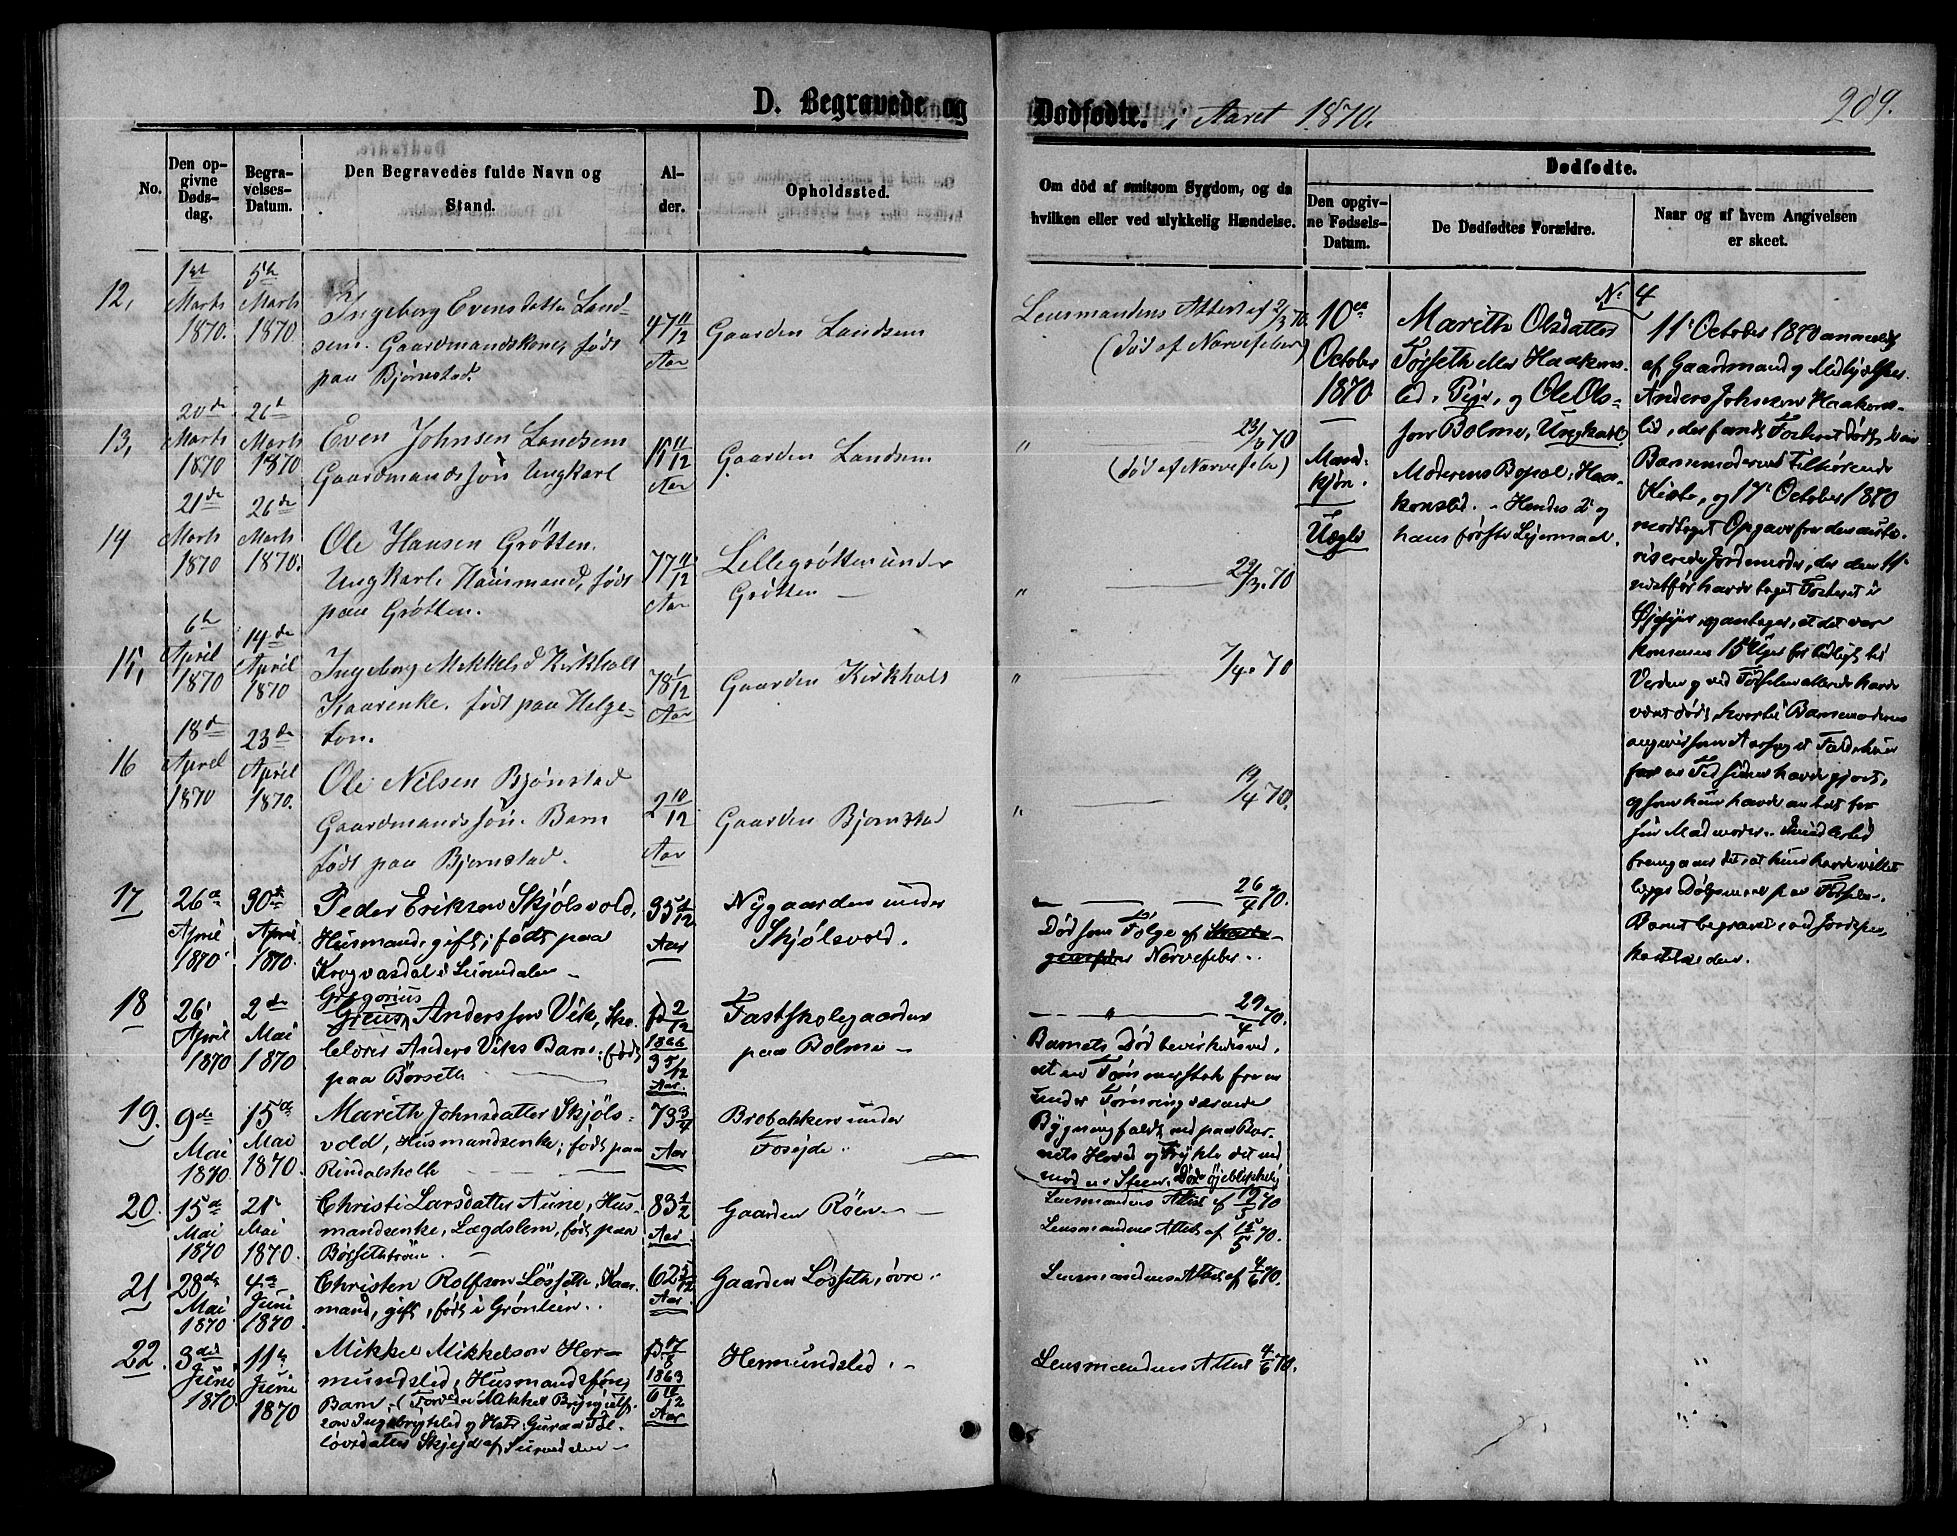 D. Begravede og
Dødfødte. i Aaret 1870.
209.
No.
Den opgivne Dødsdag.
Begravelses-Datum.
Den Begravedes fulde Navn og Stand.
Alder.
Opholdssted.
Om död af smitsom Sygdom, og da hvilken eller ved ulykkelig Hændelse.
Dødfødte.
Den opgivne Fødsels-Datum.
De Dødfødtes Forældre.
Naar og af hvem Angivelsen er skeet.
12,
1st Marts 1870.
5te Marts 1870.
Ingeborg Evensdatter Land-
sem. Gaardmandskone, født
paa Bjørnstad.
47 11/12 Aar
Gaarden Landsem
Lensmandens Attest af 2/3 70.
(død af Nervefeber)
13,
20de Marts 1870
26de Marts 1870
Even Johnsen Landsem
Gaardmandssøn Ungkarl
Aar
Gaarden Landsem
" 23/3 70
(død af Nervefeber)
14
21de Marts 1870
26de Marts 1870.
Ole Hansen Grötten.
Ungkarl. Huusmand, født
paa Grøtten.
77 11/12 Aar
Lillegrøtten under
Grøtten —
" — 70
15,
6te April 1870
14de April 1870
Ingeborg Mikkelsd Kirkholt
Kaarenke, født paa Helge-
ton.
78 1/12 Aar
Gaarden Kirkholt
" — 7/4. 70
16
18de April 1870
23de April 1870.
Ole Nilsen Bjørnstad
Gaardmandssøn. Barn
født paa Bjørnstad.
2 10/12 Aar
Gaarden Bjørnstad
" — 19/4 70.
17
26de April 1870.
30te April 1870.
Peder Eriksen Skjølsvold,
Husmand, gift; født paa
Krogvasdal i Surendalen —
35 1/12 Aar
Nygaarden under
Skjølsvold.
— 26/4 70.
Død som Følge af
Nervefeber..
18
26 April 1870
2den Mai 1870
Gregorius
Greus Anderssøn Vik, Sko-
lelærer Anders Viks Barn; født
paa Börseth
1866
3 5/12 Aar.
Fastskolegaarden
paa Bolme —
— " — 29/4 70.
Barnets Død bevirkedes ved,
at en Tømmerstok fra en
under Tømring værende
Bygning faldt ned paa Bar-
nets Hoved og trykte det ned
mod en Steen. Døde øjeblikkelig
19.
9de Mai 1870
15de Mai 1870.
Marith Johnsdatter Skjöls-
vold, Husmandsenke; født paa
Rindalsholte
73 3/4 Aar
Brobakken under
Fosejde..
Lensmandens Attest af 70
20.
15de Mai 1870
21 Mai 1870.
Christi Larsdatter Aune, Hus-
mandsenke, Lægdslem, født paa
Börsethtrøen
83 1/2 Aar.
Gaarden Röen —
Lensmandens Attest af 15/5 70.
21
28de Mai 1870
4de Juni 1870
Christen Rolfsen Lösseth, Kaar-
mand, gift, født i Grönlien..
62 5/12 Aar.
Gaarden Løsseth, øvre..
Lensmandens Attest af 4/6 70.
22.
3die Juni 1870
11te Juni 1870
Mikkel Mikkelsen Her-
mundslid, Husmandssøn,
Barn.
1863
6 Aar
Hermundslid. —
Lensmandens Attest 4/6 70.
10de October 1870
—
Mand-
kjön.
Uægte
No 4
Marith Olsdatter
Forseth eller Haakens-
lid, Pige, og Ole Ols-
søn Bolme, Ungkarl.
Moderens Bopæl: Haa-
kenslid. — Hendes 2 og
hans første Lejermaal.
11 October 1870 anmeldt
af Gaardmand og Medhjælper
Anders Johnsen Haakens-
lid, der fandt Fosteret dødt i en
Barnemoderen tilhørende
Kiste, og 17 October 1870
modtaget Opgave fra den auto-
riserede Jordemoder, der den 11
næstfør havde taget Fosteret i
Øjesyn, og antager, at det var
kommen 15 Uger for tidligt til
Verden og ved Fødselen allerede havde
været dødt, hvortil Barnemoderen
angived som Aarsag et Fald hun
for en Tid siden havde gjort,
og som hun havde omtalt for
sin Madmoder. Imidlertid
fremgaaer det, at hun havde villet
lægge Dølgsmaal paa Fødselen.
Barnet begravet ved Jordpaa-
kastelse den.